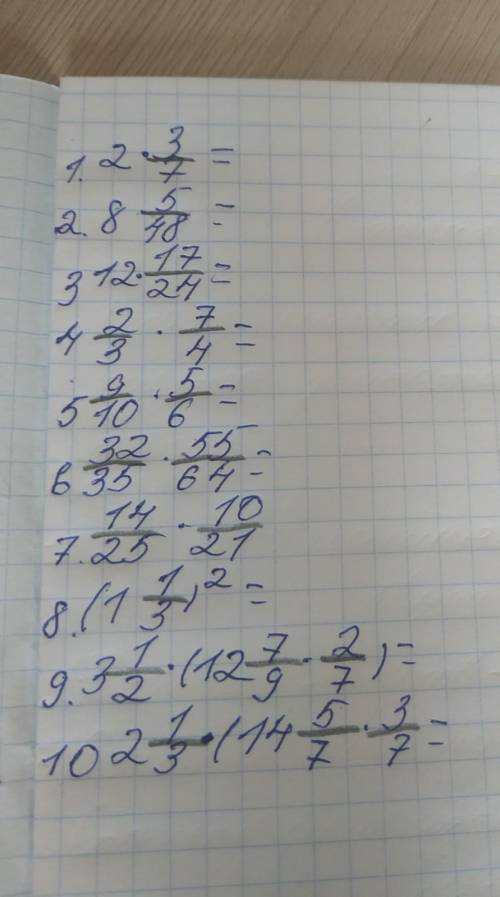 1. 2 · 3/7 =
2. 8 5/48 =
3 12 · 17/24 =
4 2/3 · 7/4 =
5 9/10 · 5/6 =
6 32/35 · 55/64 =
7. 14/25 · 10/21
8. (1 1/3)² =
9. 3 1/2 · (12 7/9 · 2/7) =
10 2 1/3 · (14 5/7 · 3/7 =